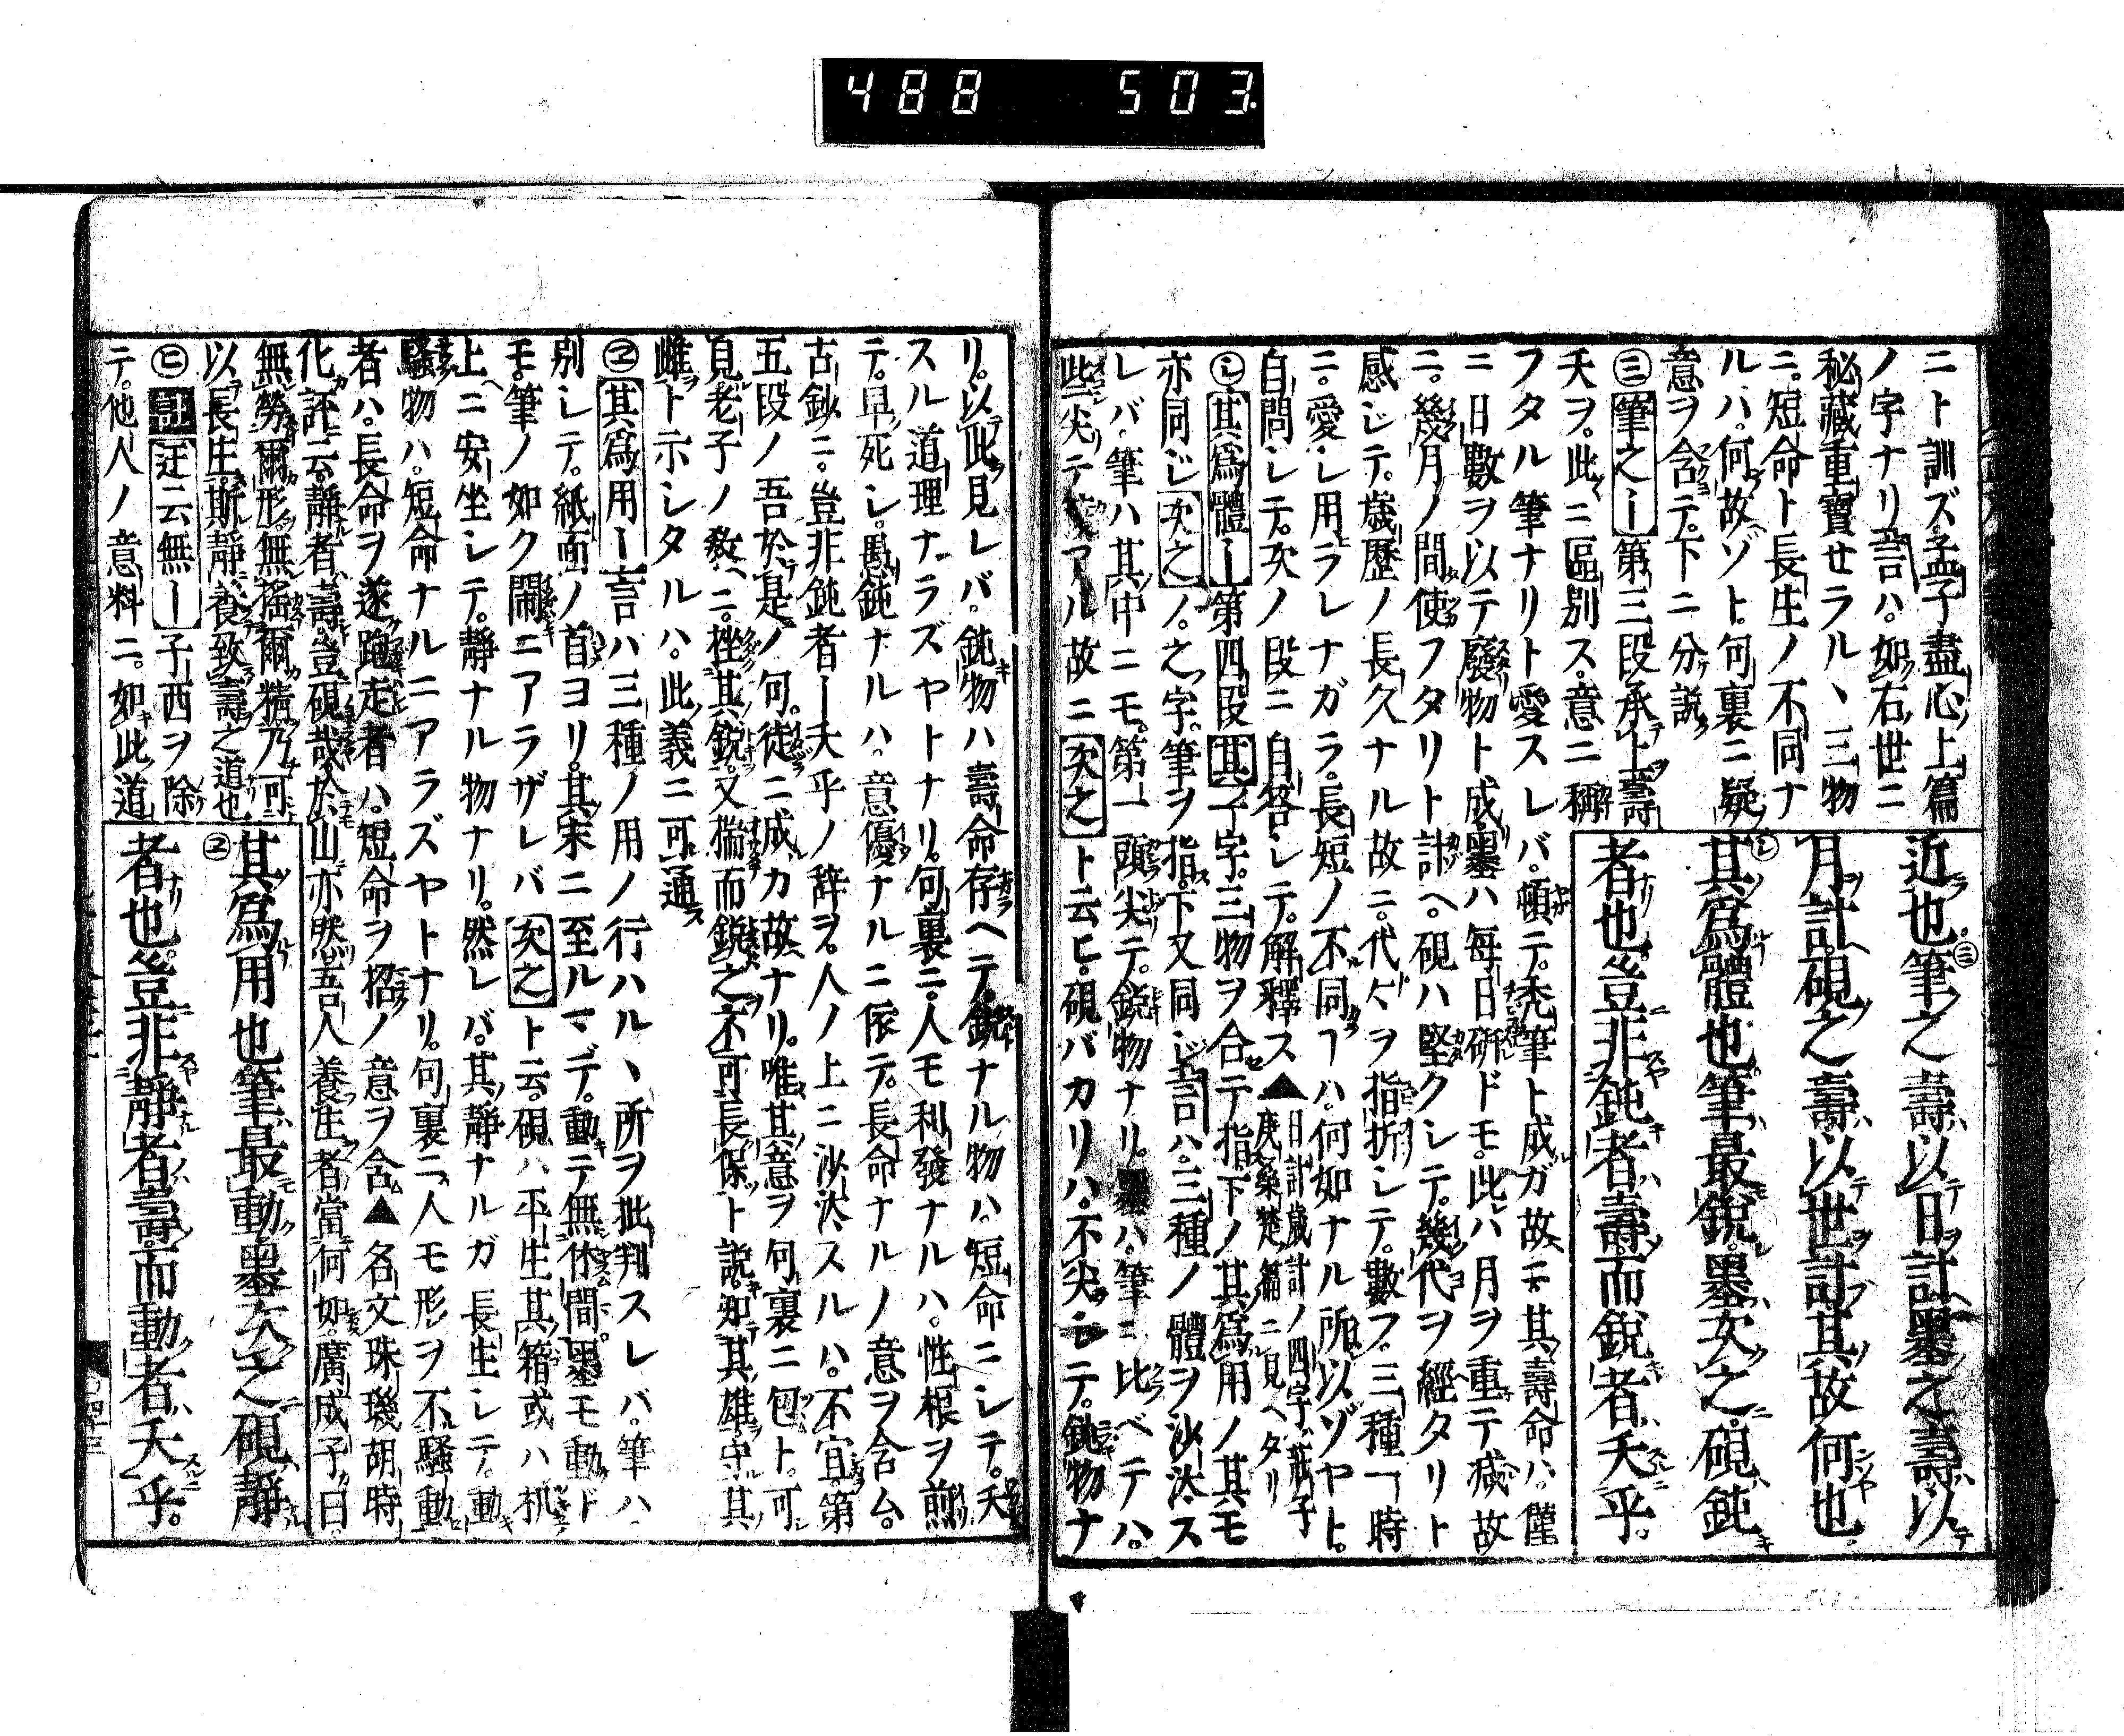 488 503.
近也筆之壽以日計墨之壽以
月計硯之壽以世計其故何也
其爲體也筆最鋭墨次之硯鈍
者也豈非鈍者壽而鋭者夭乎
ニト訓ズ孟子盡心上篇
ノ字ナリ言ハ如右世ニ
秘藏重寶セラルヽ三物
ニ短命ト長生ノ不同ナ
ルハ何故ゾト句裏ニ疑
意ヲ含テ下ニ分説
㊂筆之ー第三段承上壽
夭ヲ此ニ區別ス意ニ稱
フタル筆ナリト愛スレバ頓テ禿筆ト成ガ故ニ其壽命ハ僅
ニ日數ヲ以テ廢物ト成墨ハ毎日研ドモ此ハ月ヲ重テ減故
ニ幾月ノ間使フタリト計ヘ硯ハ堅クシテ幾代ヲ經タリト
感ジテ歳歴ノ長久ナル故ニ代々ヲ指折シテ數フ三種一時
ニ愛シ用ラレナガラ長短ノ不同ヿハ何如ナル所以ゾヤト
自問シテ次ノ段ニ自答シテ解釋ス▲日計歳計ノ四字莊子庚桑楚篇ニ見ヘタリ
㋛其爲體ー第四段其ノ字三物ヲ合テ指下ノ其爲用ノ其モ
亦同ジ次之ノ之字筆ヲ指下又同ジ言ハ三種ノ體ヲ沙汰ス
レバ筆ハ其中ニモ第一頭尖テ鋭物ナリ墨ハ筆ニ比ベテハ
些尖テアル故ニ次之ト云ヒ硯バカリハ不尖シテ鈍物ナ
リ以此見レバ鈍物ハ壽命存ヘテ鋭ナル物ハ短命ニシテ夭
スル道理ナラズヤトナリ句裏ニ人モ利發ナルハ性根ヲ煎
テ早死シ愚鈍ナルハ意優ナルニ依テ長命ナルノ意ヲ含ム
古鈔ニ豈非鈍者ー夭乎ノ辞ヲ人ノ上ニ沙汰スルハ不宜第
五段ノ吾於是ノ句徒ニ成カ故ナリ唯其意ヲ句裏ニ包ト可
見老子ノ教ヘニ挫其鋭又揣而鋭之不可長保ト説知其雄守其
雌ト示シタルハ此義ニ可通
㋓其爲用ー言ハ三種ノ用ノ行ハルヽ所ヲ批判スレバ筆ハ
別シテ紙面ノ首ヨリ其末ニ至ルマデ動テ無休間墨モ動ド
モ筆ノ如ク鬧ニアラザレバ次之ト云硯ハ平生其箱或ハ机
上ニ安坐シテ靜ナル物ナリ然レバ其靜ナルガ長生シテ動
騷物ハ短命ナルニアラズヤトナリ句裏ニ人モ形ヲ不騷動
者ハ長命ヲ遂跑走者ハ短命ヲ招ノ意ヲ含▲名文珠璣胡時
化評云靜者壽豈硯哉於山亦然吾人養生者當何如廣成子曰
無勞爾形無搖爾精乃可
以長生斯靜養致壽之道也
㋪評迂云無ー子西ヲ除
テ他人ノ意料ニ如此道
其爲用也筆最動墨次之硯靜
者也豈非靜者壽而動者夭乎